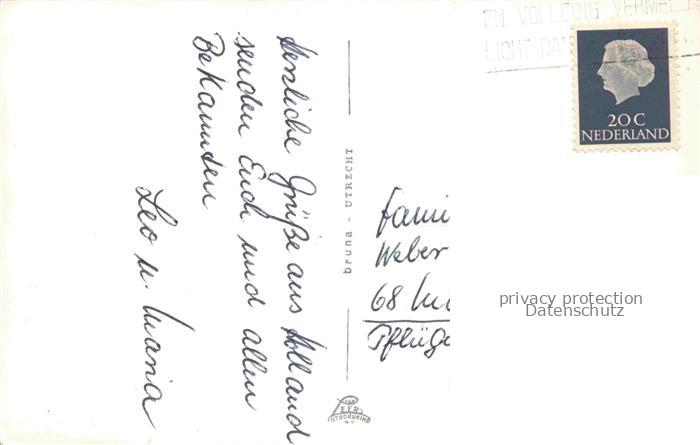 EN VOLLEDIG VERMELD
LICHT
20 C
NEDERLAND
Herzliche Grüße aus Holland
senden Euch und allen
Bekannten
Leo u. Maria
bruna - UTRECHT
Fami
Weber
68
Pflüge
privacy protection
Datenschutz
VAN
LEER'S
FOTODRUKIND
N.V.